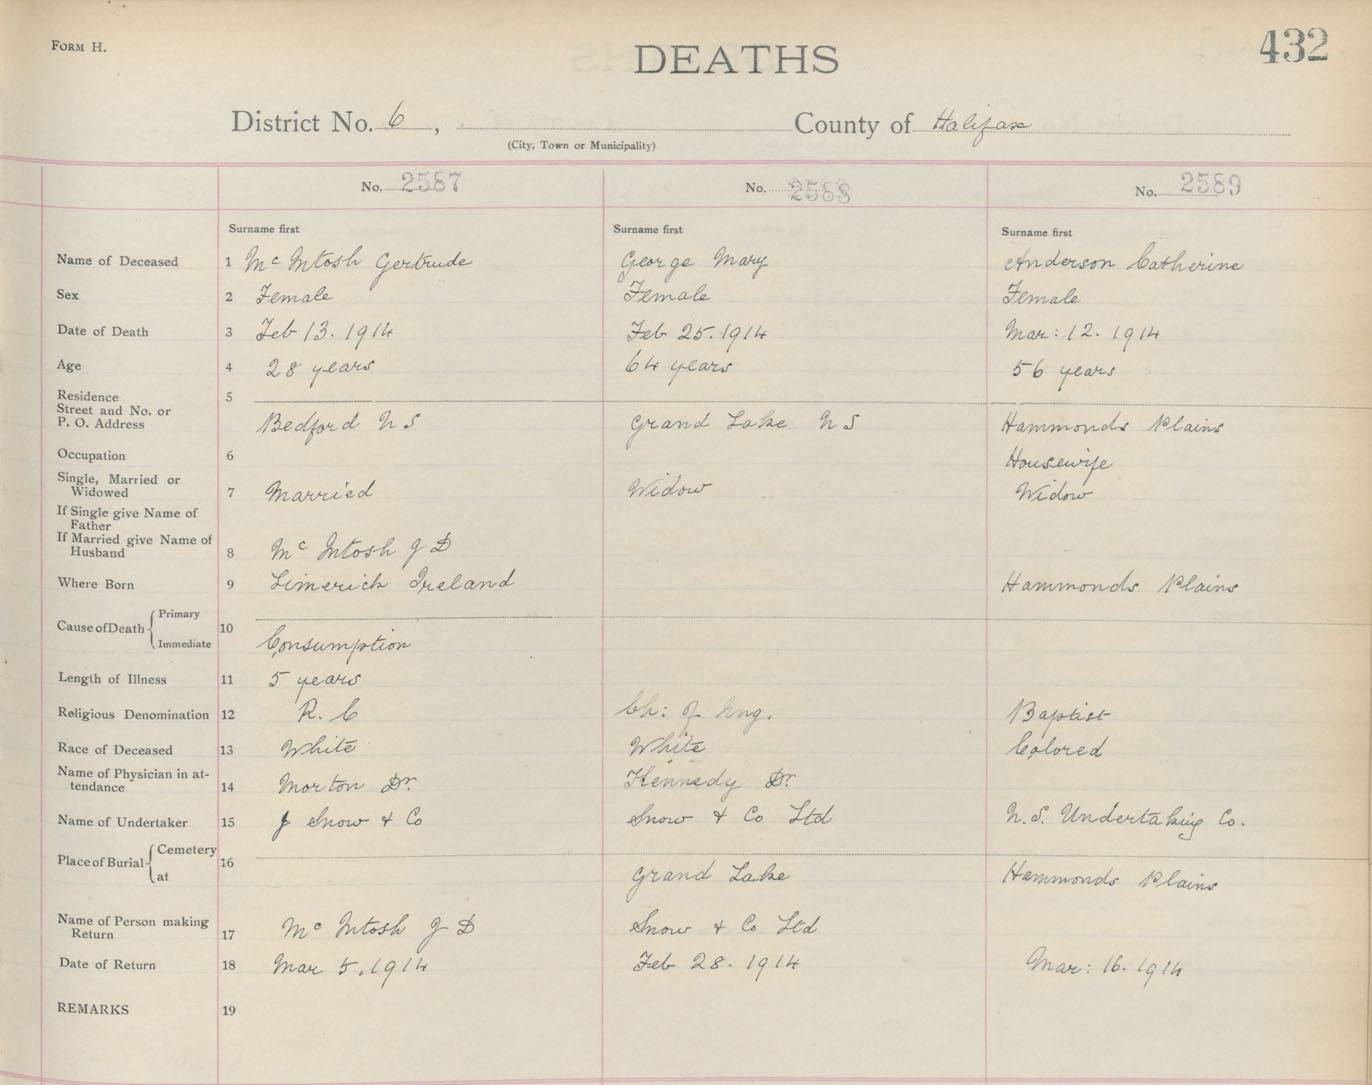 FORM H.
DEATHS
432
District No. 6, County of Halifax
(City, Town or Municipality)
No. 2587 No. 2588 No. 2589
Surname first Surname first Surname first
Name of Deceased 1 Mc Intosh Gertrude George Mary Anderson Catherine
Sex 2 Female Female Female
Date of Death 3 Feb 13. 1914 Feb 25. 1914 Mar: 12. 1914
Age 4 28 years 64 years 56 years
Residence 5
Street and No. or
P. O. Address Bedford N S Grand Lake N S Hammonds Plains
Occupation 6 Housewife
Single, Married or
Widowed 7 Married Widow Widow
If Single give Name of
Father
If Married give Name of
Husband 8 Mc Intosh J D
Where Born 9 Limerick Ireland Hammonds Plains
Cause of Death Primary 10
Immediate Consumption
Length of Illness 11 5 years
Religious Denomination 12 R. C Ch: of Eng. Baptist
Race of Deceased 13 White White Colored
Name of Physician in at-
tendance 14 Morton Dr. Kennedy Dr.
Name of Undertaker 15 J Snow & Co Snow & Co Ltd N.S. Undertaking Co.
Place of Burial Cemetery 16
at Grand Lake Hammonds Plains
Name of Person making
Return 17 Mc Intosh J D Snow & Co Ltd
Date of Return 18 Mar 5, 1914 Feb 28. 1914 Mar: 16. 1914
REMARKS 19